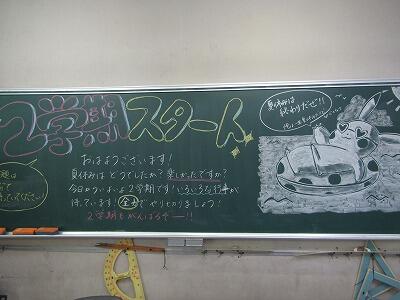 2学期スタート
おはようございます！
夏休みはどうでしたか？楽しかったですか？
今日からいよいよ2学期です！いろいろな行事が
待っています！全力でやり切りましょう！
2学期もがんばろそー！！
夏休みは
終わりだぜ！！